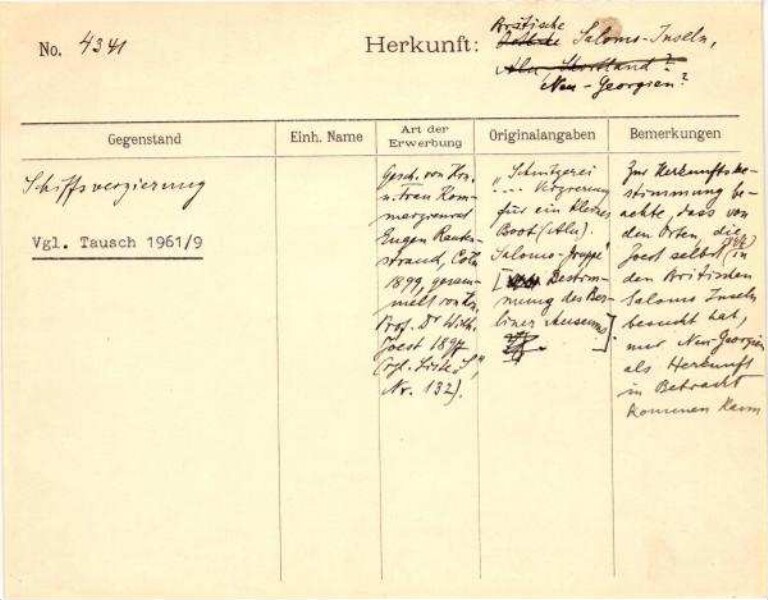 No. 4341
Herkunft: Britische
Salomo-Inseln,
Alu Shortland?
Neu-Georgien?
Gegenstand
Einh. Name
Art der
Erwerbung
Originalangaben
Bemerkungen
Schiffsverzierung
Vgl. Tausch 1961/9
Gesch. von Hrn.
u. Frau Kom-
merzienrat
Eugen Rauten-
strauch, Cöln
1899, gesam-
melt von Hn.
Prof. Dr Wilh.
Joest 1897
(vgl. Liste "S",
Nr. 132).
"Schnitzerei
.... Verzierung
für ein kleines
Boot (Alu).
Salomo-Gruppe"
[Bestim-
mung des Ber-
liner Museums]
Zur Herkunftsbe-
stimmung be-
achte, dass von
den Orten, die
Joest selbst in
den Britischen
Salomo Inseln
besucht hat,
nur Neu-Georgien
als Herkunft
in Betracht
kommen kann